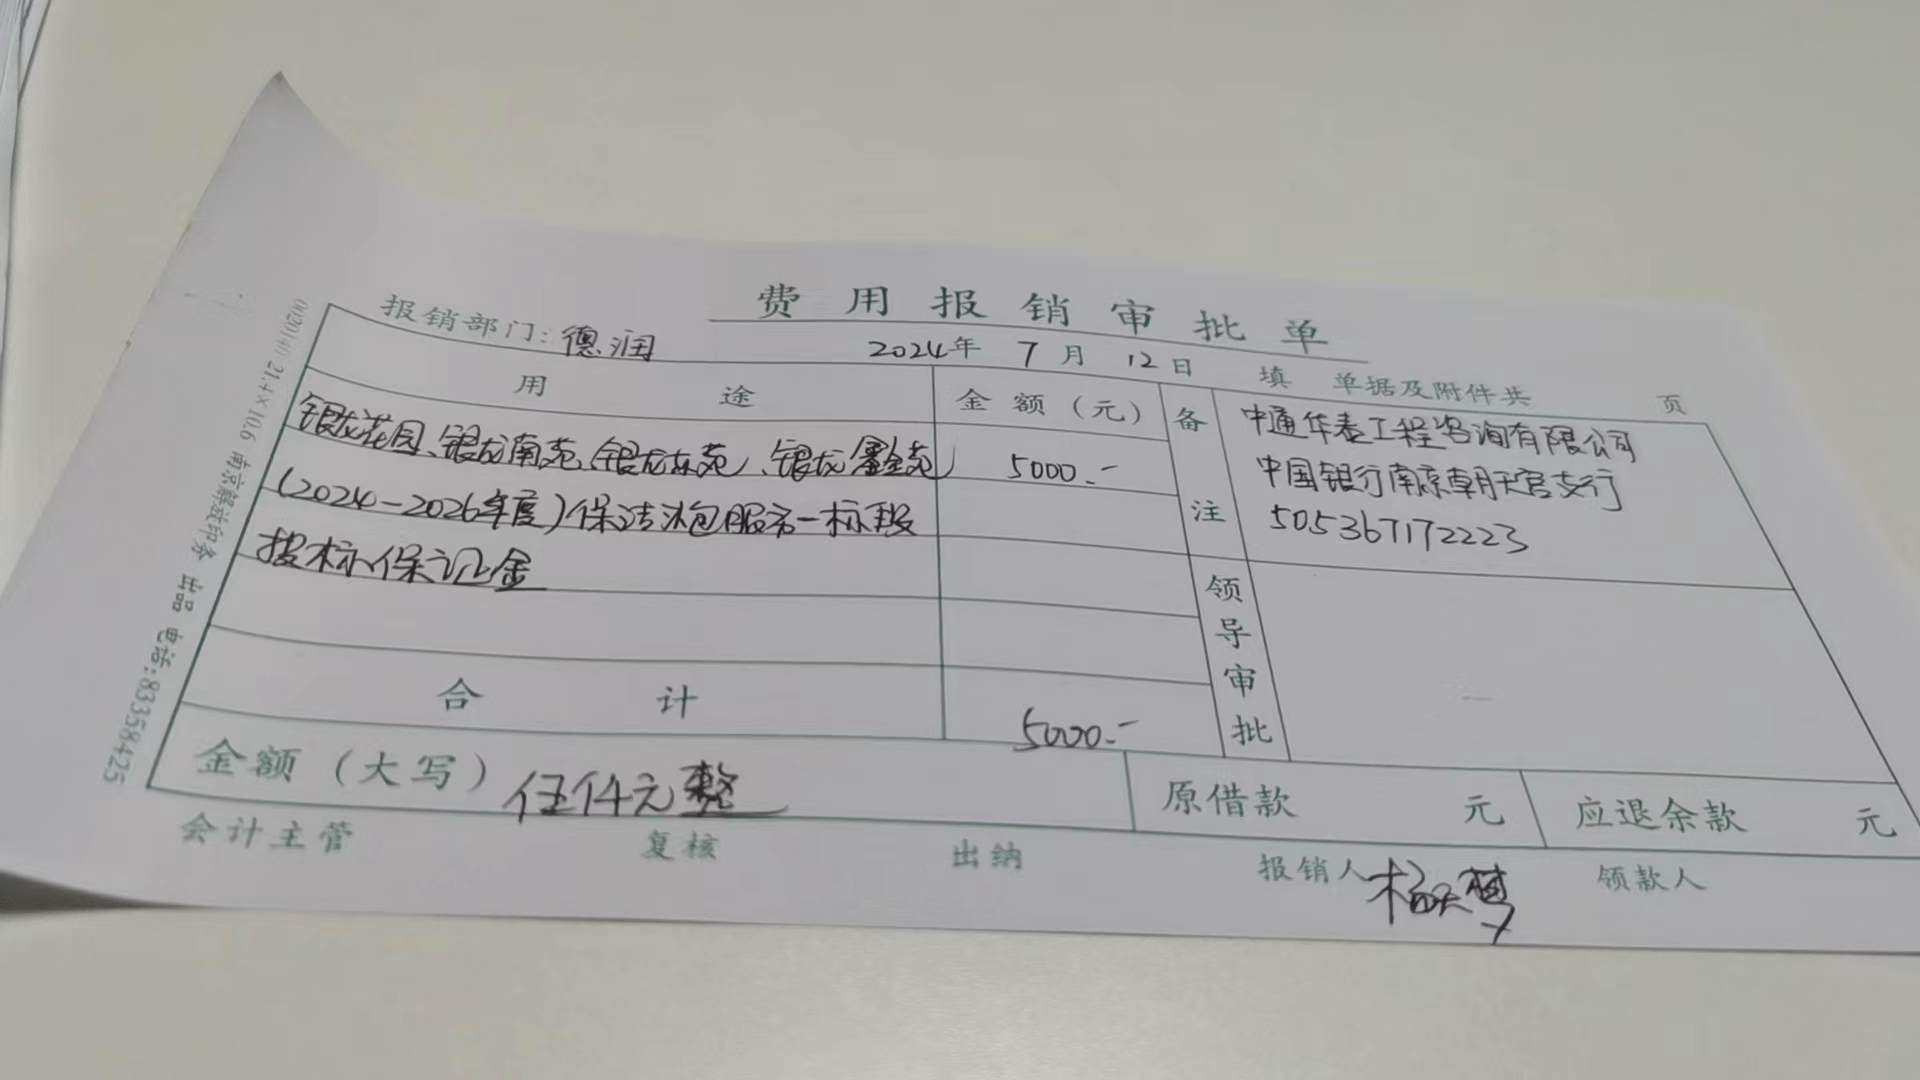 费用报销审批单
报销部门：德润 2024年 7月 12日 填 单据及附件共 页
用途 金额（元） 备注
银龙花园、银龙南苑、银龙东苑、银龙鑫苑 5000.-
(2024-2026年度)保洁外包服务一标段
投标保证金
中通华春工程咨询有限公司
中国银行南京朝天宫支行
505367172223
领导审批
合计 5000.-
金额（大写）伍仟元整 原借款 元 应退余款 元
会计主管 复核 出纳 报销人 杨天梦 领款人
21.4×10.6 南京解放印务 出品 电话:83358425